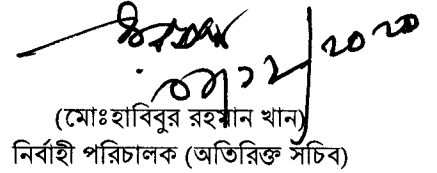 (মোঃহাবিবুর রহমান খান)
নির্বাহী পরিচালক (অতিরিক্ত সচিব)